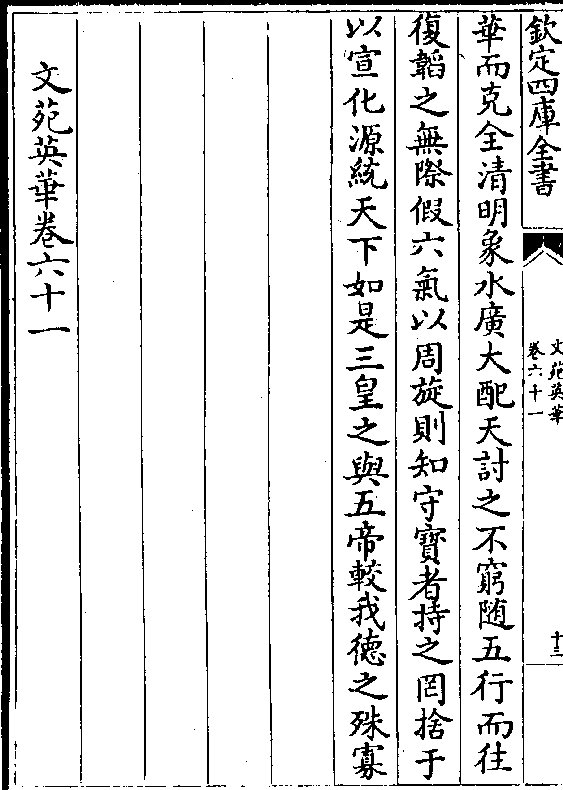 欽定四庫全書
文苑英華
卷六十一
十三
華而克全清明象水廣大配天討之不窮随五行而往
復韜之無際假六氣以周旋則知守寶者持之罔捨于
以宣化源統天下如是三皇之與五帝較我德之殊寡
文苑英華卷六十一